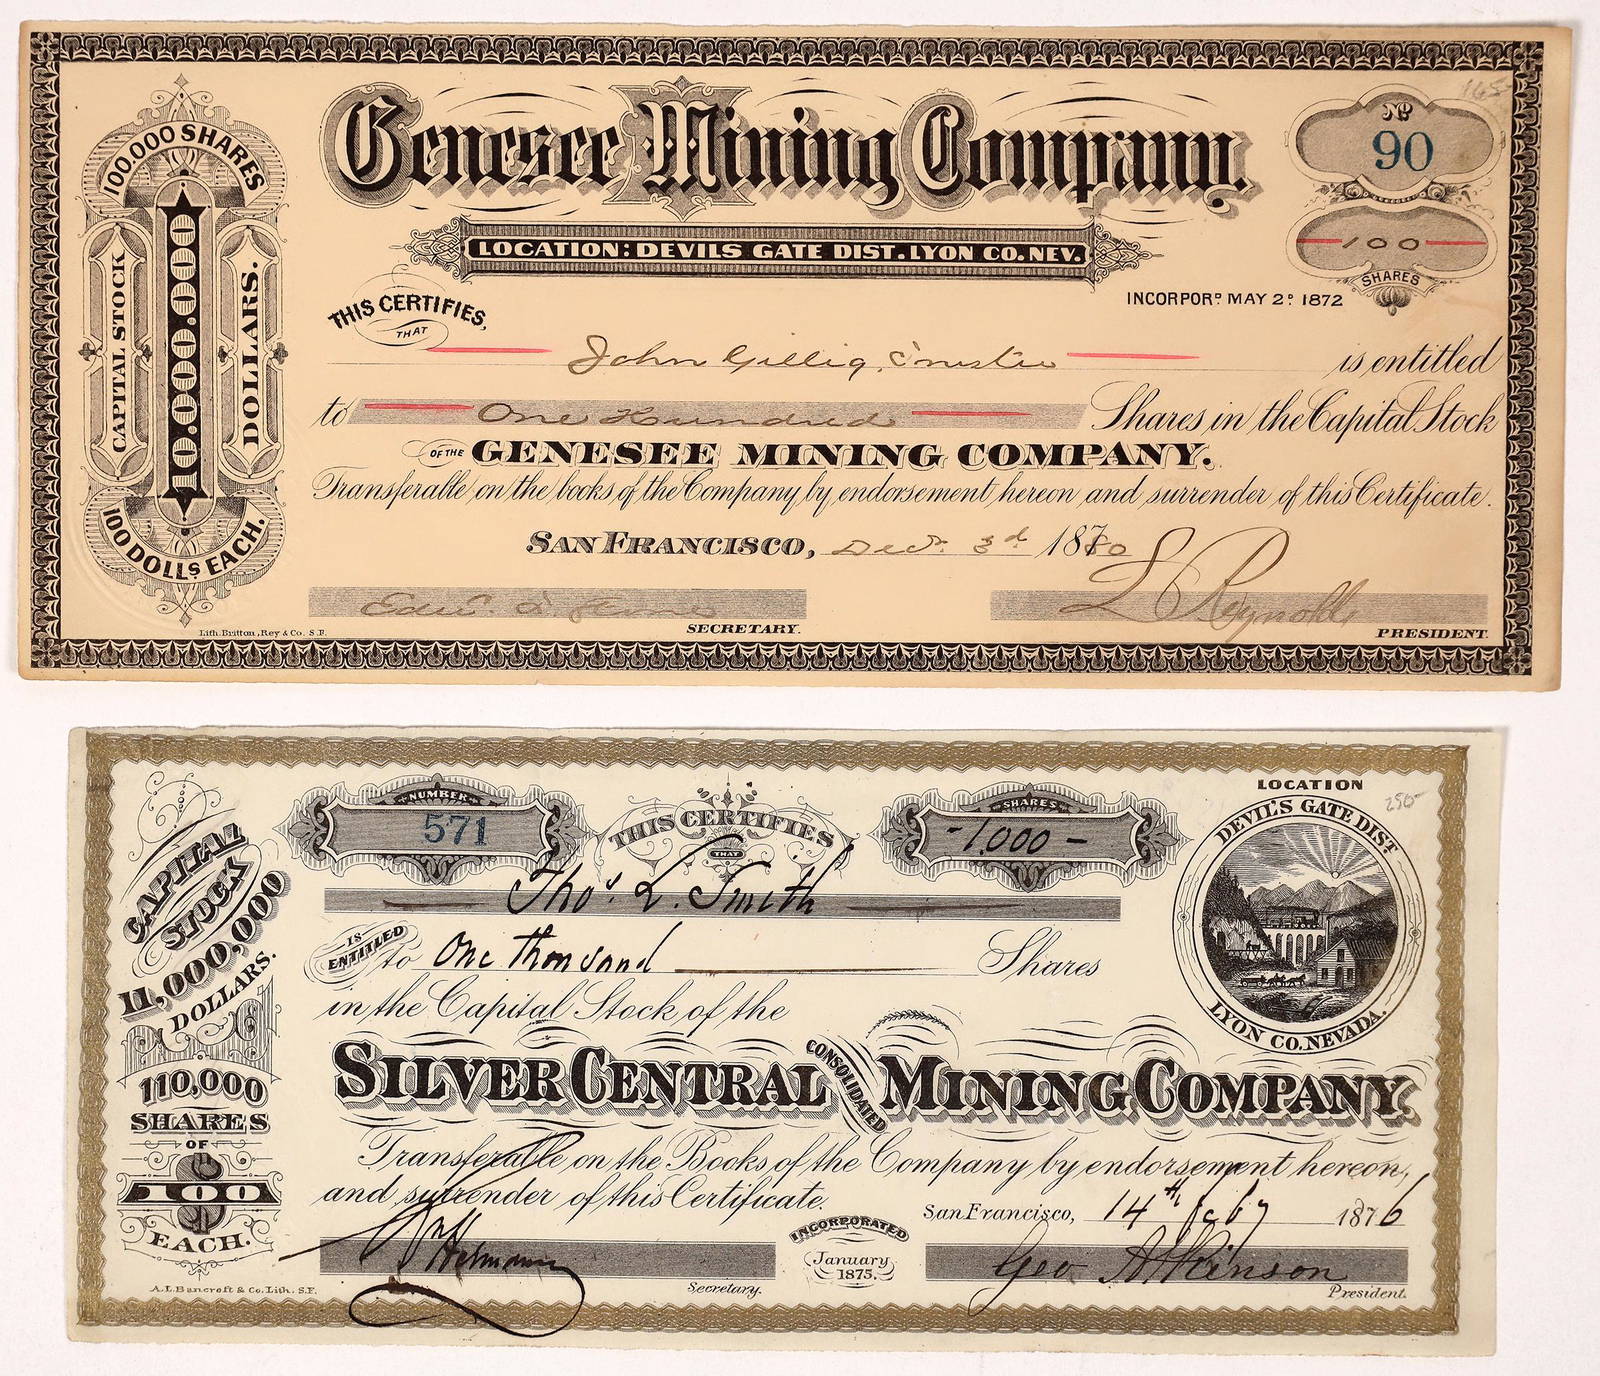 Genesee Mining Company.
Nº 90
165-
LOCATION: DEVILS GATE DIST. LYON CO. NEV.
100
SHARES
INCORPORD MAY 2D 1872
100.000 SHARES
CAPITAL STOCK
10.000.000
DOLLARS.
100 DOLLS EACH.
THIS CERTIFIES,
THAT
John Gillig, Trustee is entitled
to One Hundred Shares in the Capital Stock
OF THE GENESEE MINING COMPANY.
Transferable on the books of the Company by endorsement hereon and surrender of this Certificate.
SAN FRANCISCO, Decr. 3d 1880
SECRETARY.
Reynolds
PRESIDENT.
Lith. Britton, Rey & Co. S.F.
CAPITAL
STOCK
11,000,000
DOLLARS.
110,000
SHARES
OF
$
100
EACH.
NUMBER
571
THIS CERTIFIES
THAT
SHARES
-1,000-
LOCATION
250-
DEVIL'S GATE DIST
LYON CO. NEVADA.
Thos. L. Smith
IS
ENTITLED
to One thousand Shares
in the Capital Stock of the
SILVER CENTRAL CONSOLIDATED MINING COMPANY.
Transferable on the Books of the Company by endorsement hereon,
and surrender of this Certificate.
San Francisco, 14th 1876
INCORPORATED
January
1875.
Secretary.
Geo Atkinson
President.
A.L. Bancroft & Co. Lith. S.F.